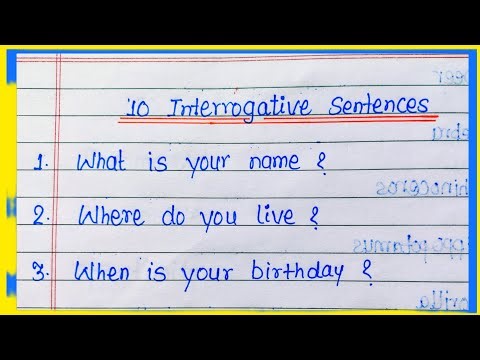 10 Interrogative Sentences
1. What is your name ?
2. Where do you live ?
3. When is your birthday ?